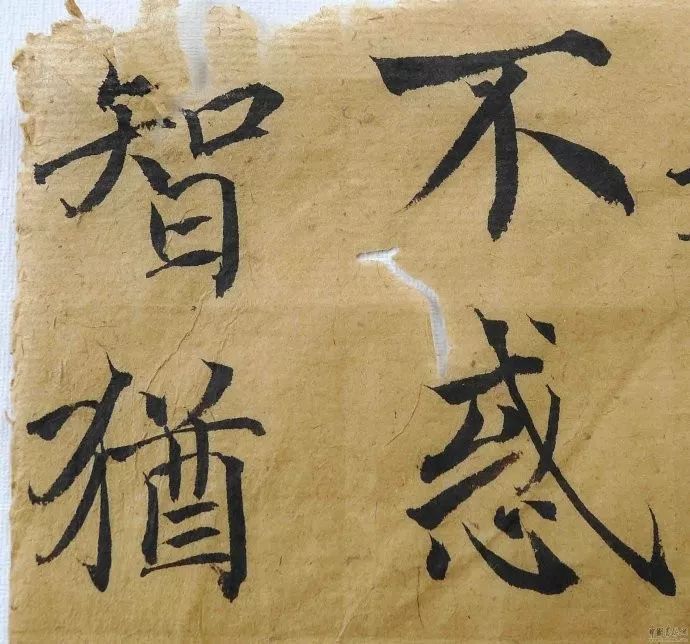 不惑
智猶